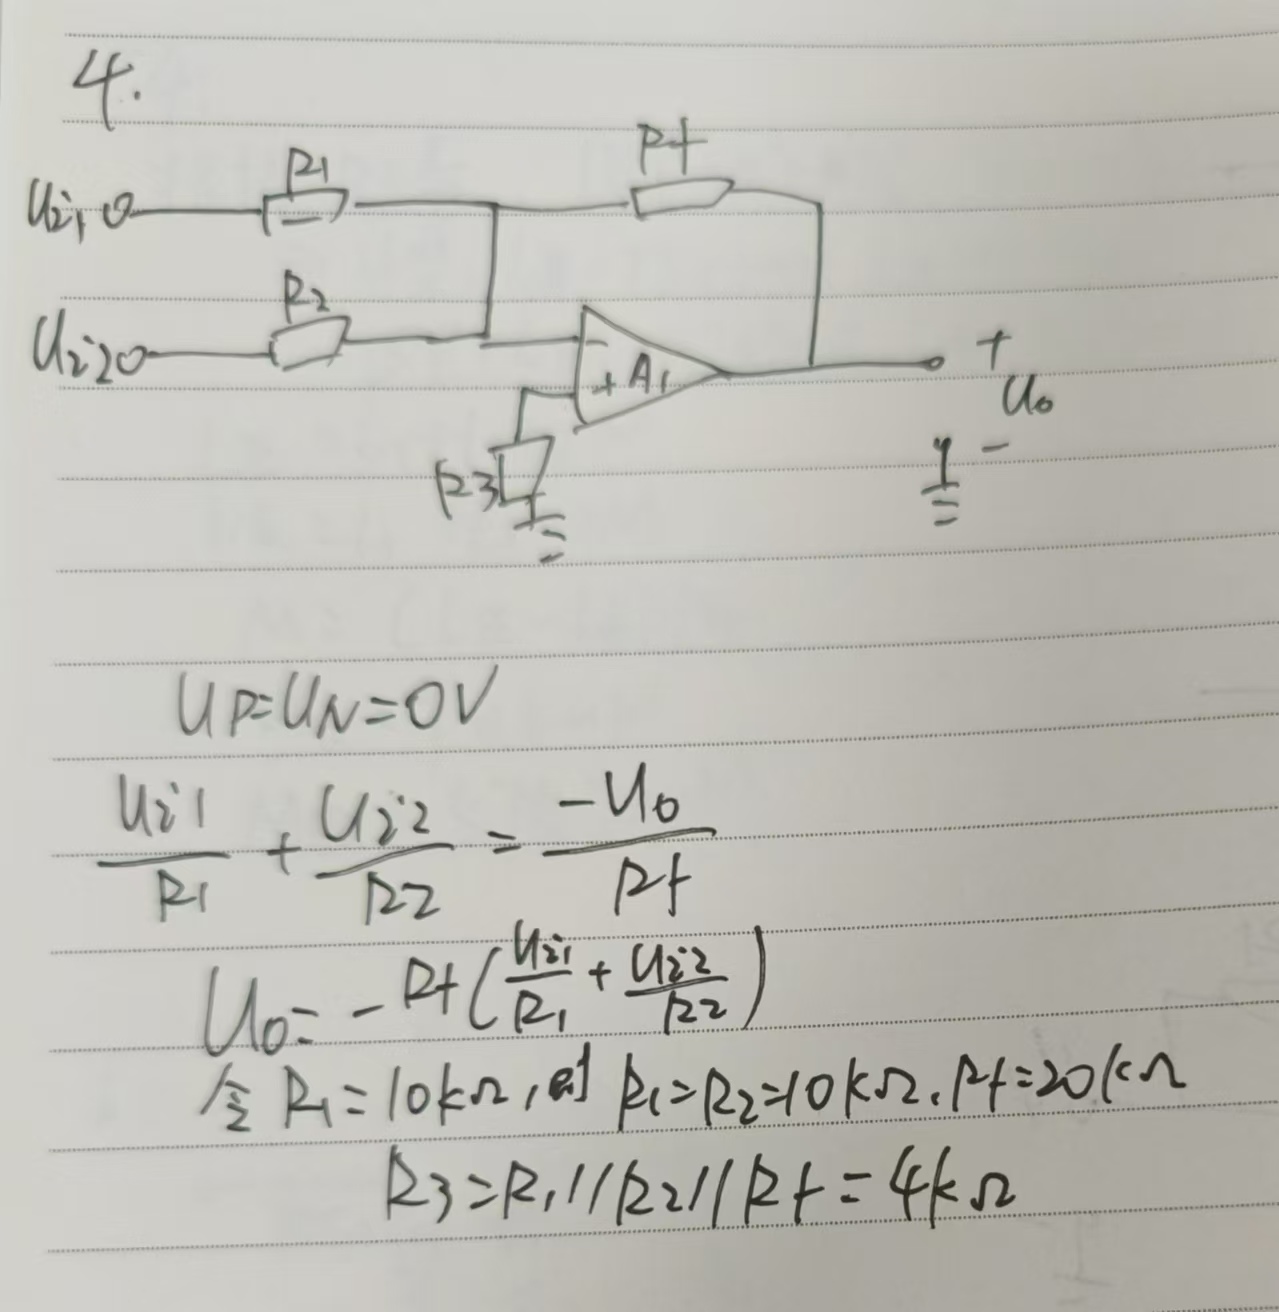 4.
R1
Rf
Ui1
R2
Ui2
- A1
+
+
Uo
-
R3
UP=UN=0V
Ui1/R1 + Ui2/R2 = -Uo/Rf
Uo=-Rf(Ui1/R1 + Ui2/R2)
令R1=10kΩ,则R1=R2=10kΩ.Rf=20kΩ
R3=R1//R2//Rf=4kΩ